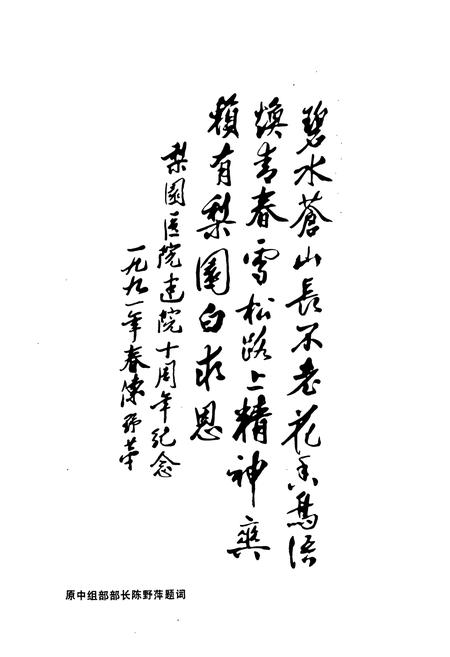 碧水苍山长不老花香鸟语
焕青春雪松路上精神爽
赖有梨园白求恩
梨园医院建院十周年纪念
一九九一年春陈野苹
原中组部部长陈野萍题词